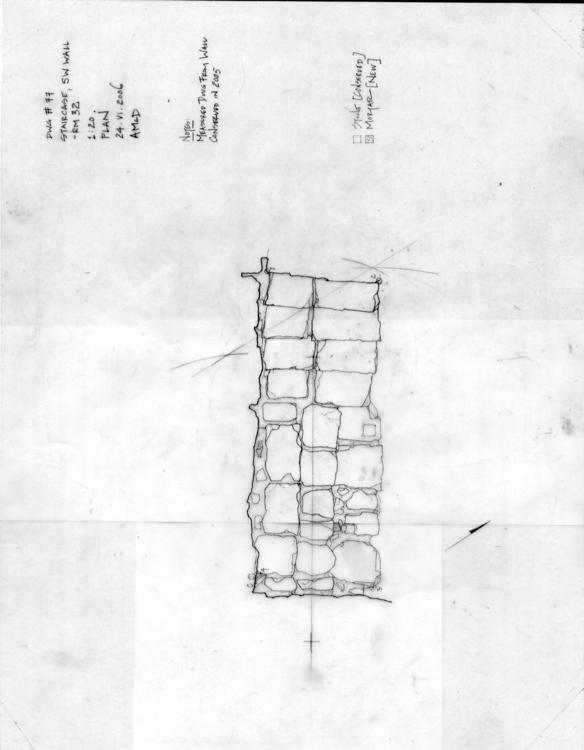 DWG # 44
STAIRCASE, SW WALL
- RM 32
1:20
PLAN
24.VI.2006
AMcD
NOTES:
MEASURED DWG FROM WALL
CONSERVED IN 2005
[CONSERVED]
MORTAR [NEW]